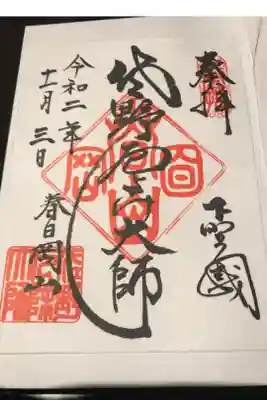 奉拝
下野國
佐野厄除大師
令和二年
十一月三日
春日岡山